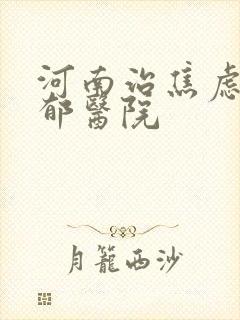 河南治焦虑
郁醫院
月籠西沙